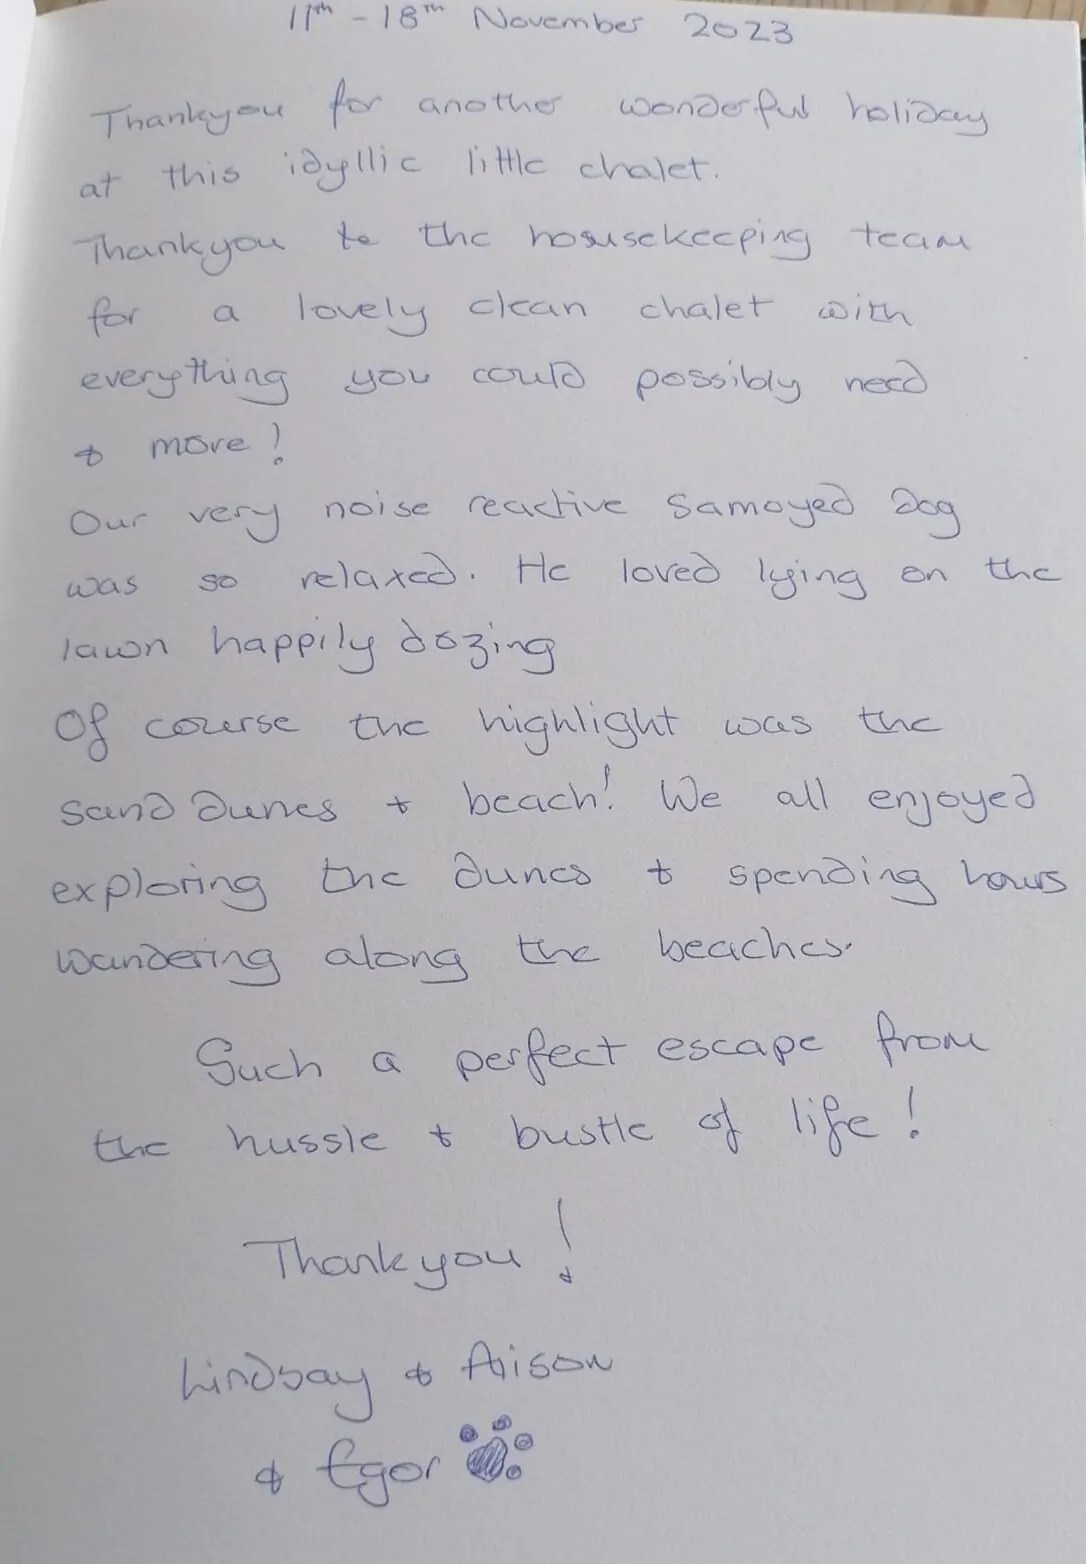 11th - 18th November 2023
Thankyou for another wonderful holiday
at this idyllic little chalet.
Thankyou to the housekeeping team
for a lovely clean chalet with
everything you could possibly need
& more!
Our very noise reactive Samoyed dog
was so relaxed. He loved lying on the
lawn happily dozing
Of course the highlight was the
sand dunes + beach! We all enjoyed
exploring the dunes & spending hours
wandering along the beaches.
Such a perfect escape from
the hussle & bustle of life!
Thankyou!
Lindsay & Alison
& Egor